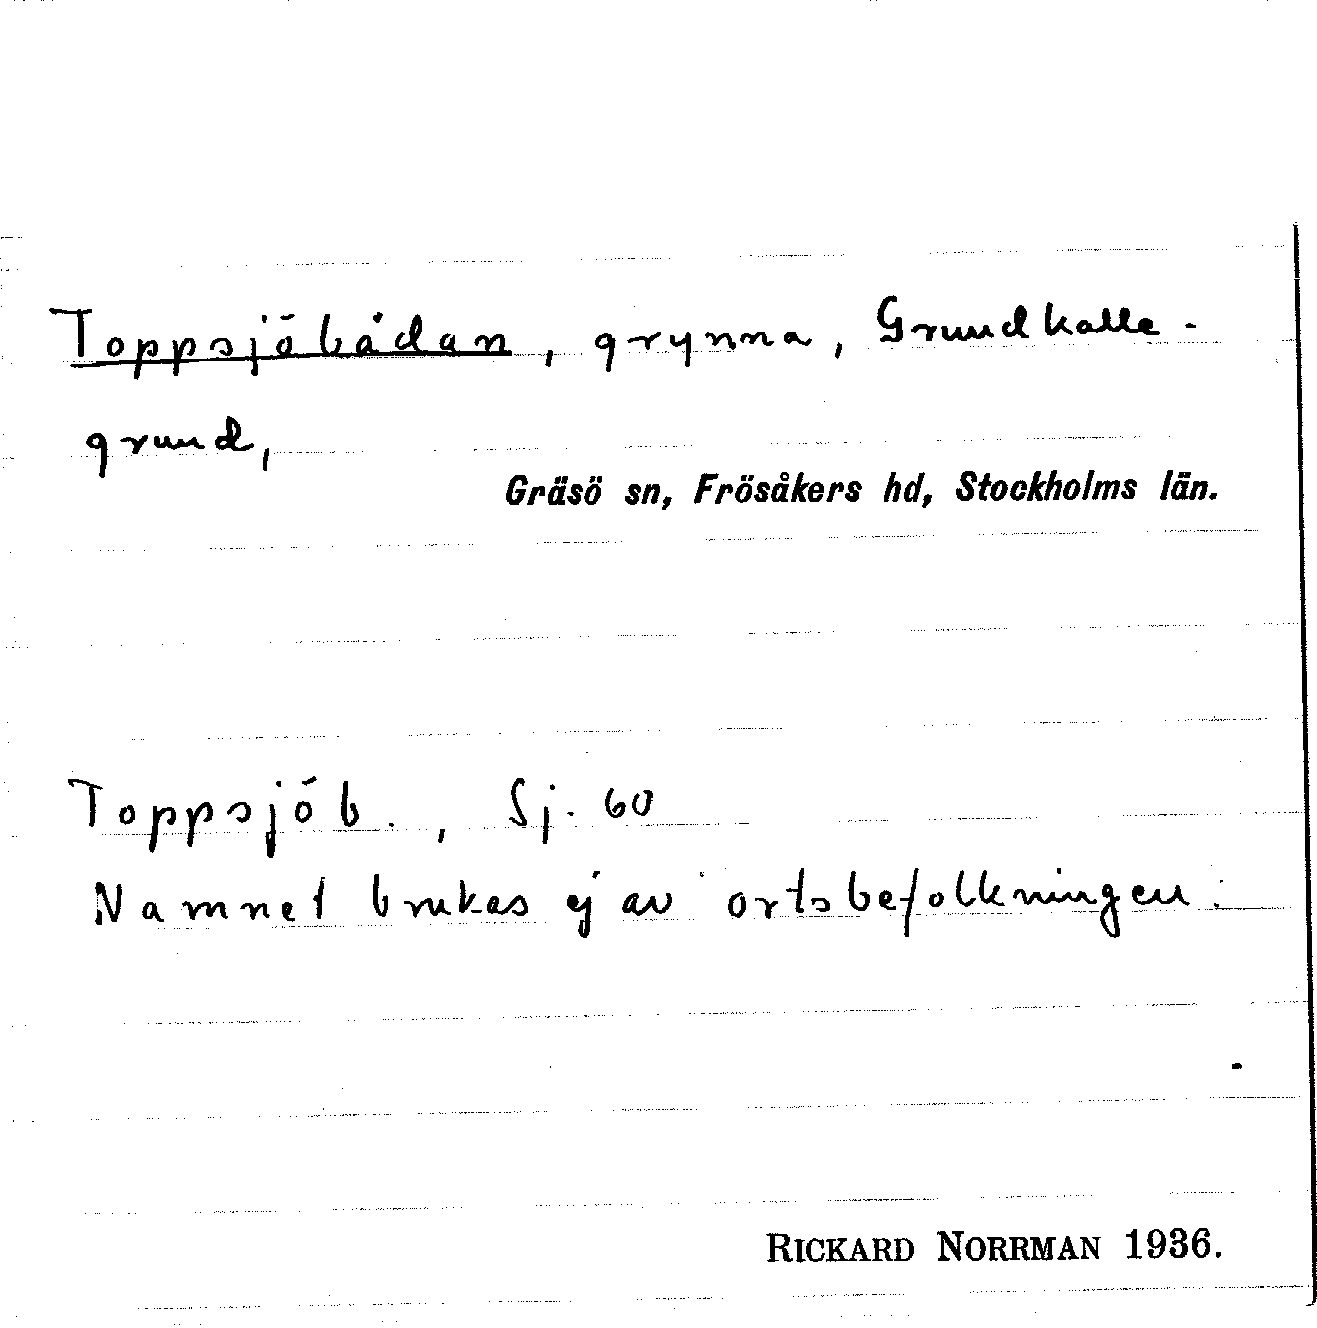 Toppsjöbådan, grynna, Grundkalle-
grund,
Gräsö sn, Frösåkers hd, Stockholms län.
Toppsjöb., Sj. 60
Namnet brukas ej av ortsbefolkningen.
RICKARD NORRMAN 1936.